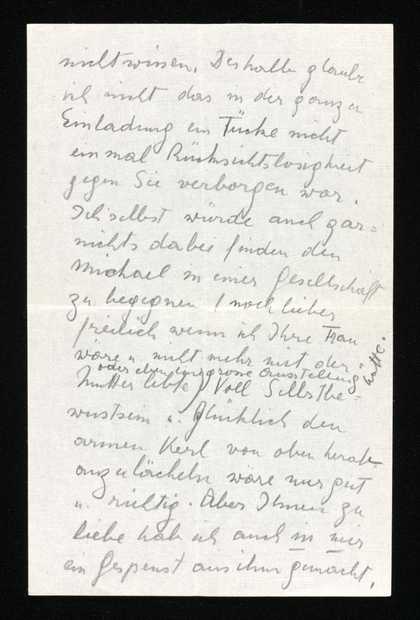 nicht wissen. Deshalb glaube
ich nicht das in der ganzen
Einladung ein Tücke nicht
einmal Rücksichtslosigkeit
gegen Sie verborgen war.
Ich selbst würde auch gar=
nichts dabei finden den
Michael in einer Gesellschaft
zu begegnen (noch lieber
freilich wenn ich Ihre Frau
wäre u. nicht mehr mit der
oder eben eine grosse Ausstellung hätte.
Mutter lebte) Voll Selbstbe=
wustsein u. Glücklich den
armen Kerl von oben herab
anzulächeln wäre nur gut
u. richtig. Aber Ihnen zu
liebe hab ich auch in mir
ein Gespenst aus ihm gemacht,